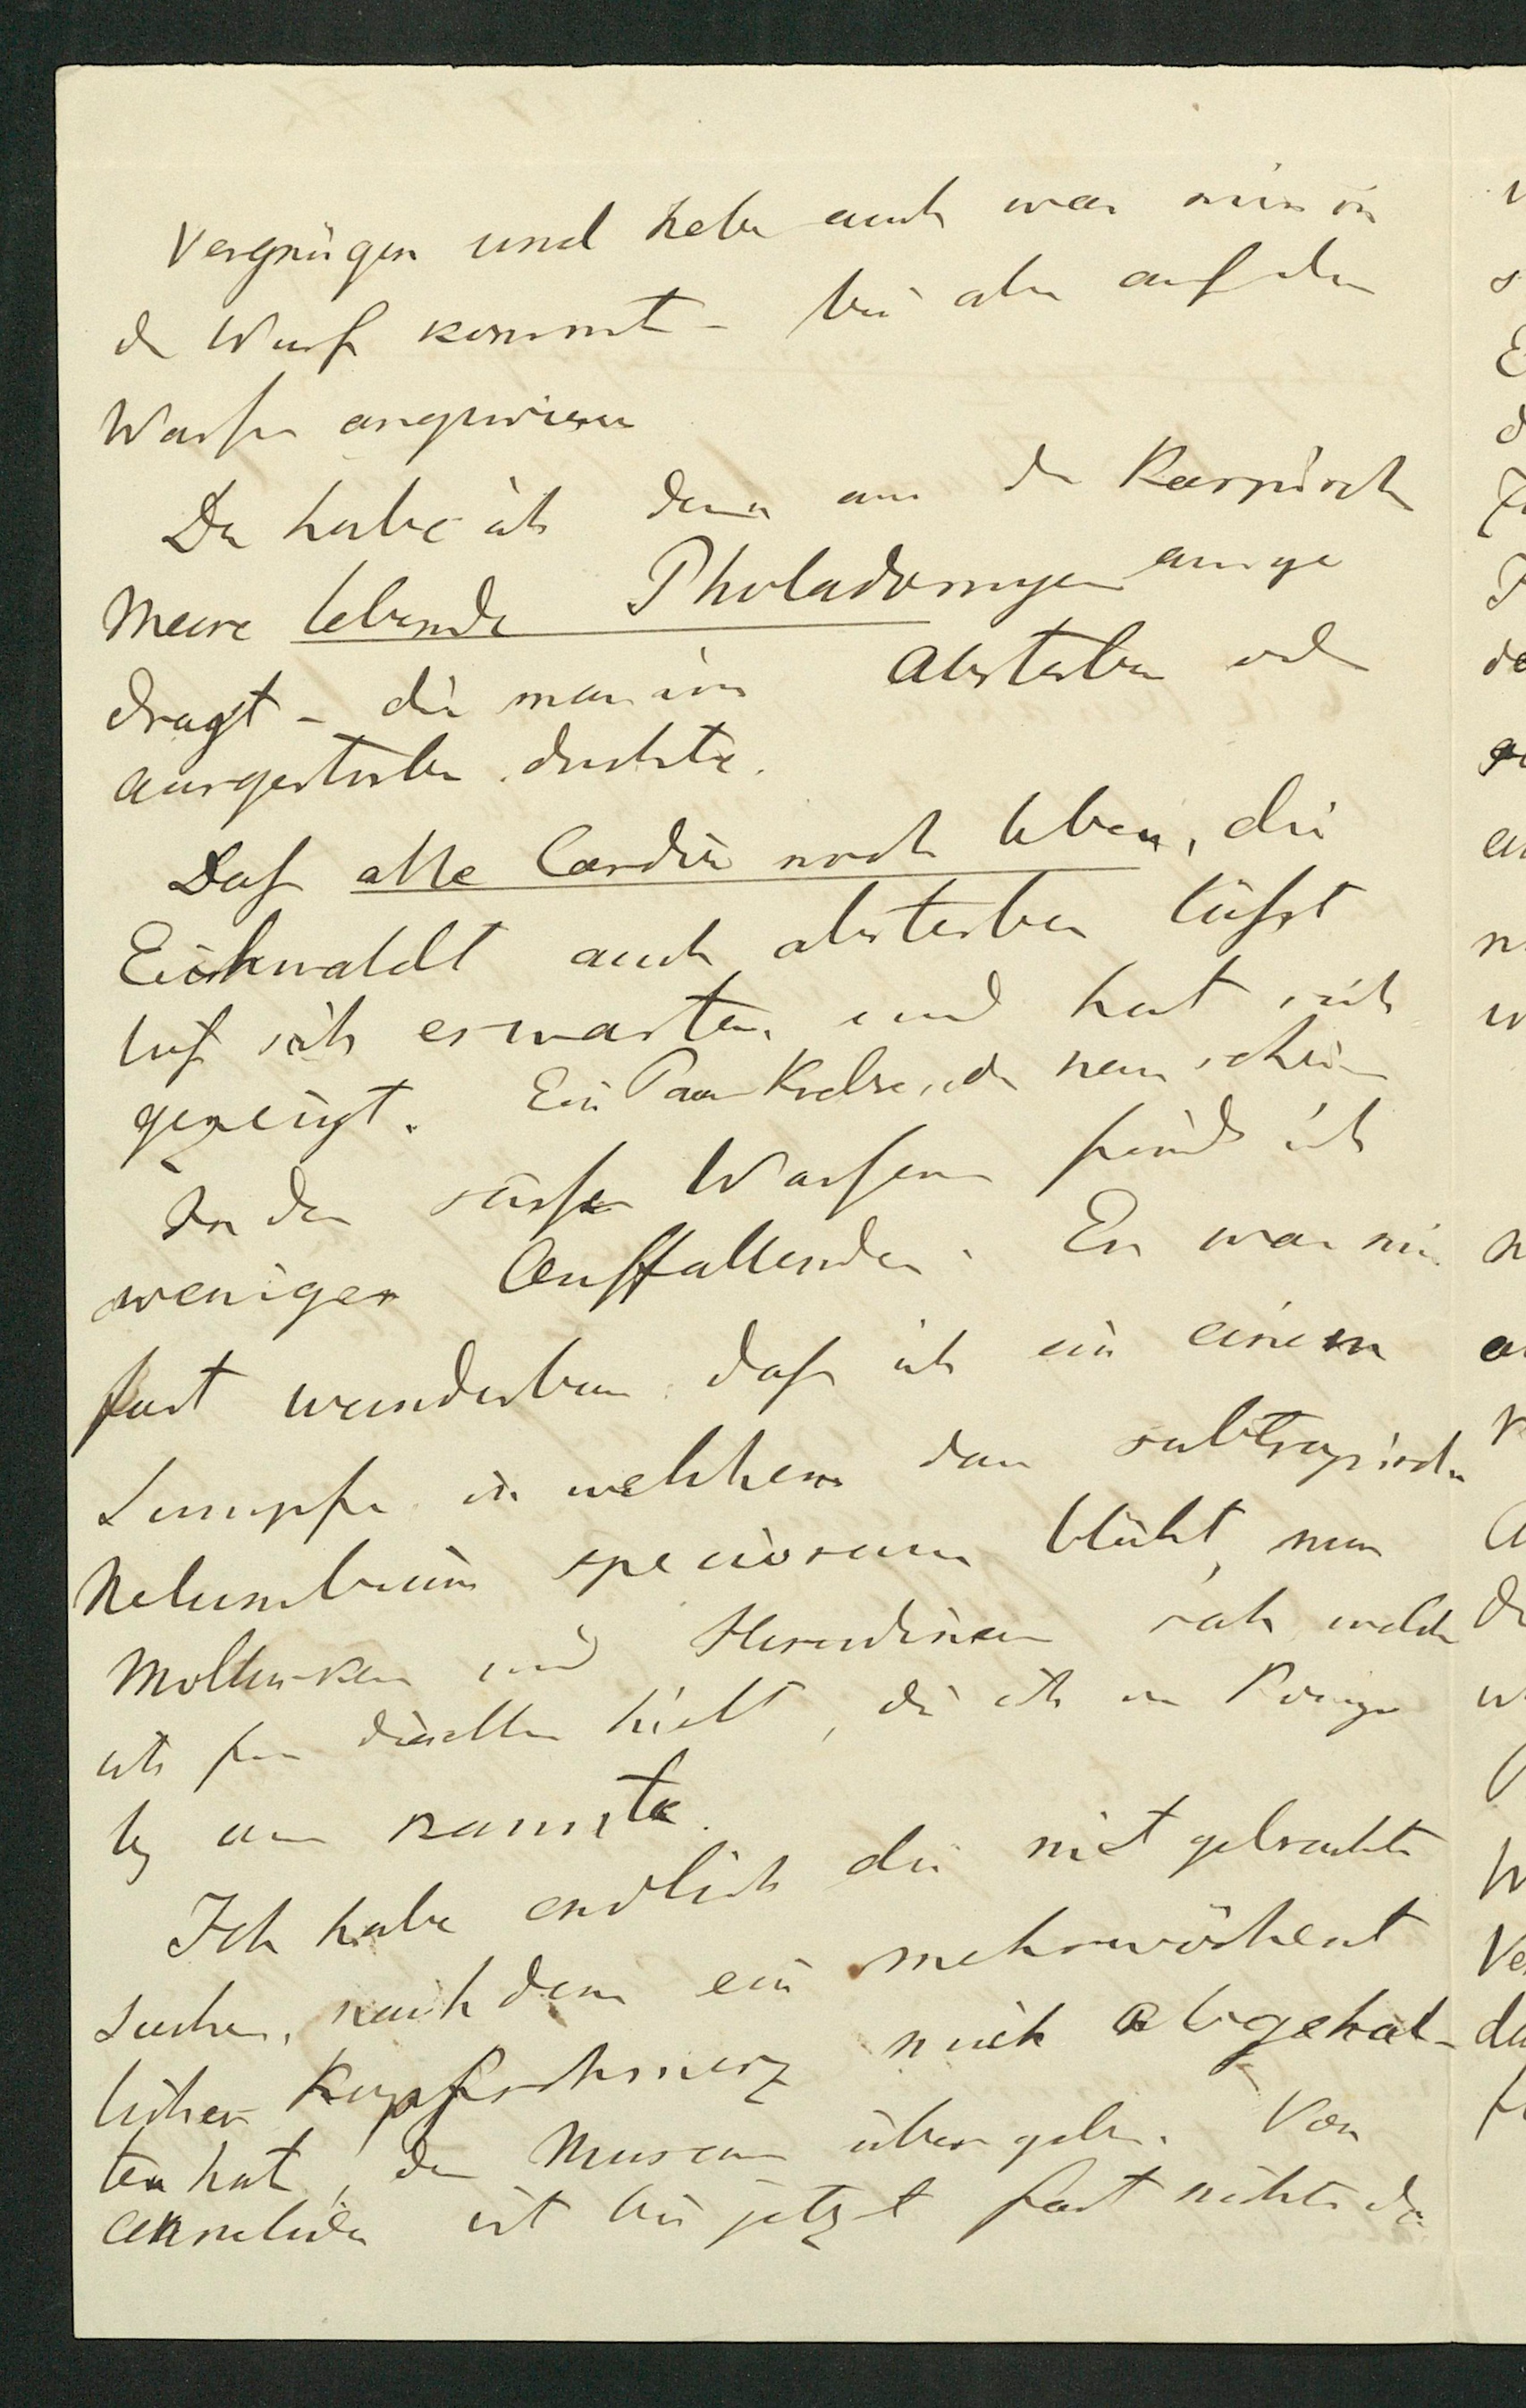 Vergnügen und hebe auch was mir in
den Wurf kommt – bin aber auf das
Wasser angewiesen
Da habe ich denn aus dem Kaspischen
Meere lebende Pholadomyen ausge
dragt – die man im Absterben oder
ausgestorben dachte.
Daß alle Cardia noch leben, die
Eichwaldt auch absterben läßt
ließ sich erwarten und hat sich
gezeigt. Ein Paar Krebse, die neu scheinen
In den süssen Wassern finde ich
weniger Auffallendes. Es war mir
fast wunderbar daß ich in einem
Sumpfe in welchem das subtropische
Nelumbium speciosum blüht, nur
Mollusken und Hirudineen sah welche
ich für dieselben hielt, die ich in Königs
bg aus kannte.
Ich habe endlich die mitgebrachten
Sachen, nachdem ein mehrwöchent
licher Kopfschmerz mich abgehal-
ten hat, dem Museum übergeben. Von
Anneliden ist bis jetzt fast nichts da